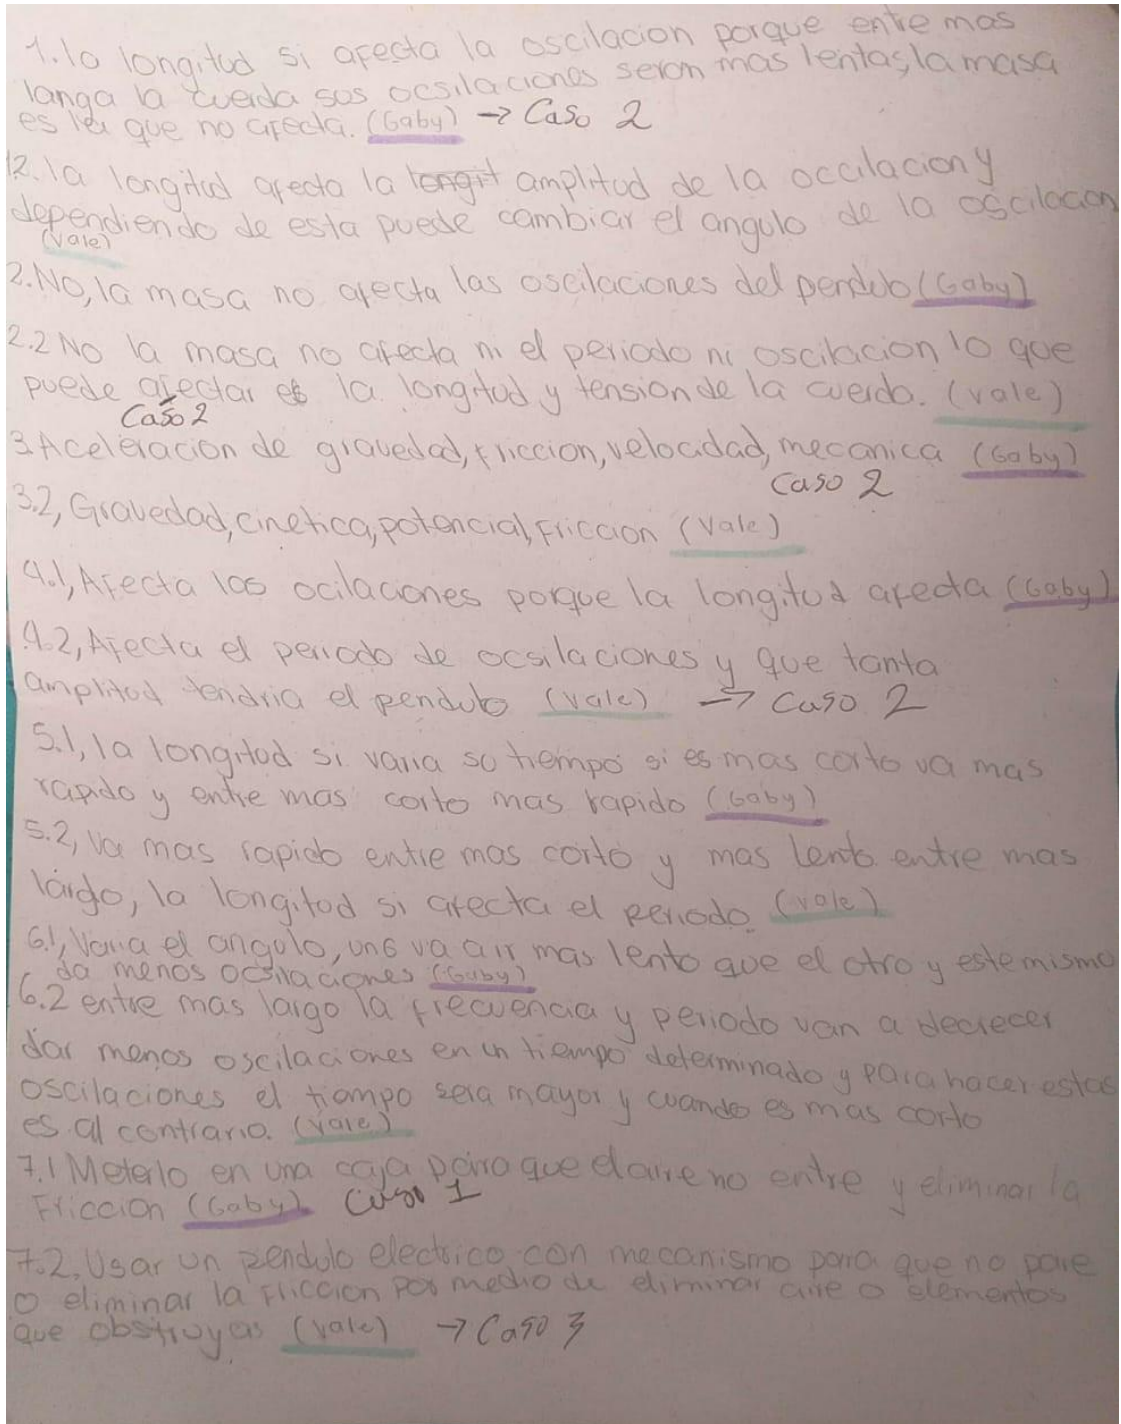 1. la longitud si afecta la oscilacion porque entre mas
langa la cuerda sos ocsilaciones seron mas lentas, la masa
es la que no afecta. (Gaby) → Caso 2
12. la longitud afecta la longit amplitud de la occilacion y
dependiendo de esta puede cambiar el angulo de la oscilacion
(Vale)
2. No, la masa no afecta las oscilaciones del pendulo (Gaby)
2.2 No la masa no afecta ni el periodo ni oscilacion lo que
puede afectar es la longitud y tension de la cuerda. (Vale)
Caso 2
3. Aceleracion de gravedad, friccion, velocidad, mecanica (Gaby)
Caso 2
3.2, Gravedad, cinetica, potencial, friccion (Vale)
4.1, Afecta las ocilaciones porque la longitud afecta (Gaby)
4.2, Afecta el periodo de ocsilaciones y que tanta
amplitud tendria el pendulo (Vale) → Caso 2
5.1, la longitud si varia so tiempo si es mas corto va mas
rapido y entre mas corto mas rapido (Gaby)
5.2, Va mas rapido entre mas corto y mas lento entre mas
largo, la longitud si afecta el periodo. (Vale)
6.1, Varia el angulo, uno va a ir mas lento que el otro y este mismo
da menos ocsilaciones (Gaby)
6.2 entre mas largo la frecuencia y periodo van a decrecer
dar menos oscilaciones en un tiempo determinado y para hacer estas
oscilaciones el tiempo sera mayor y cuando es mas corto
es al contrario. (Vale)
7.1 Meterlo en una caja para que el aire no entre y eliminar la
Friccion (Gaby) Caso 1
7.2, Usar un pendulo electrico con mecanismo para que no pare
o eliminar la friccion por medio de eliminar aire o elementos
que obstruyas (Vale) → Caso 3